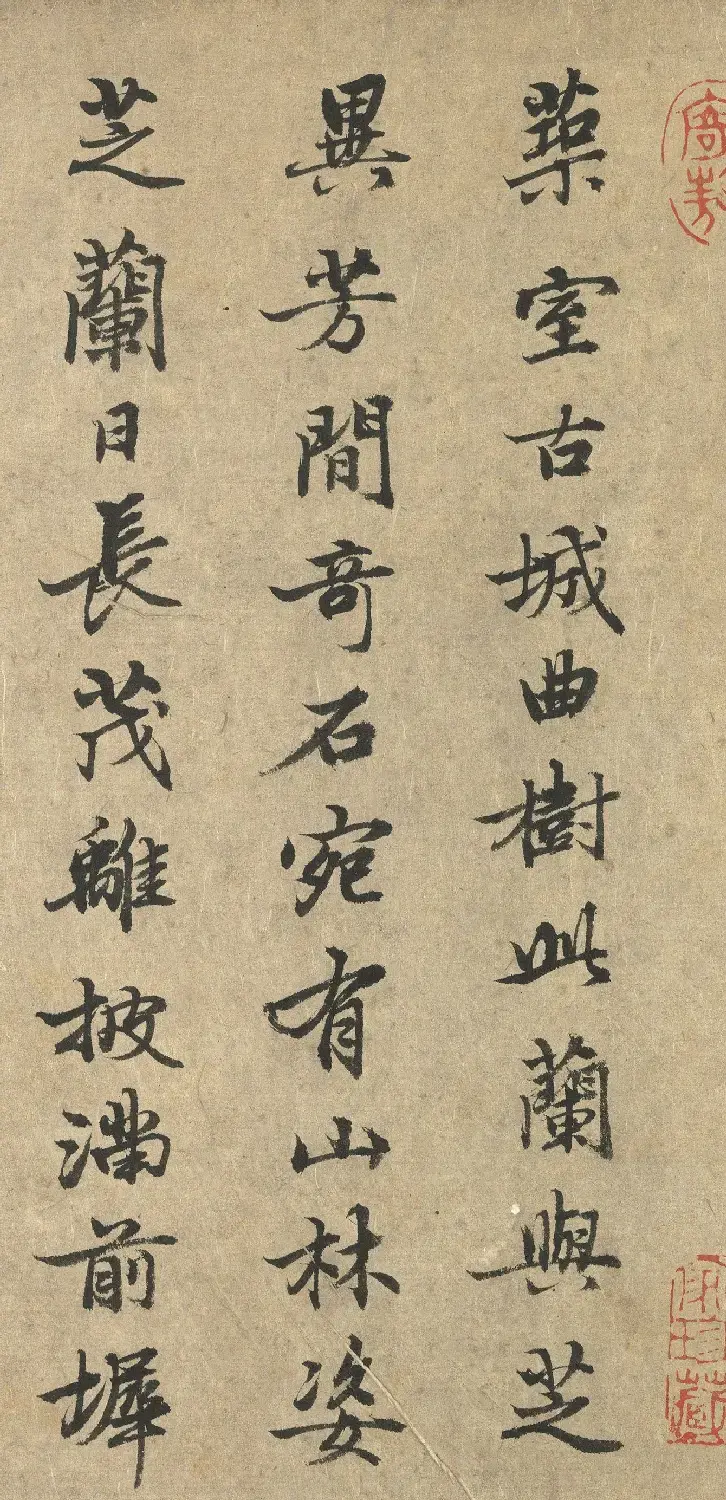 築室古城曲樹此蘭與芝
異芳間奇石宛有山林姿
芝蘭日長茂離披滿前墀